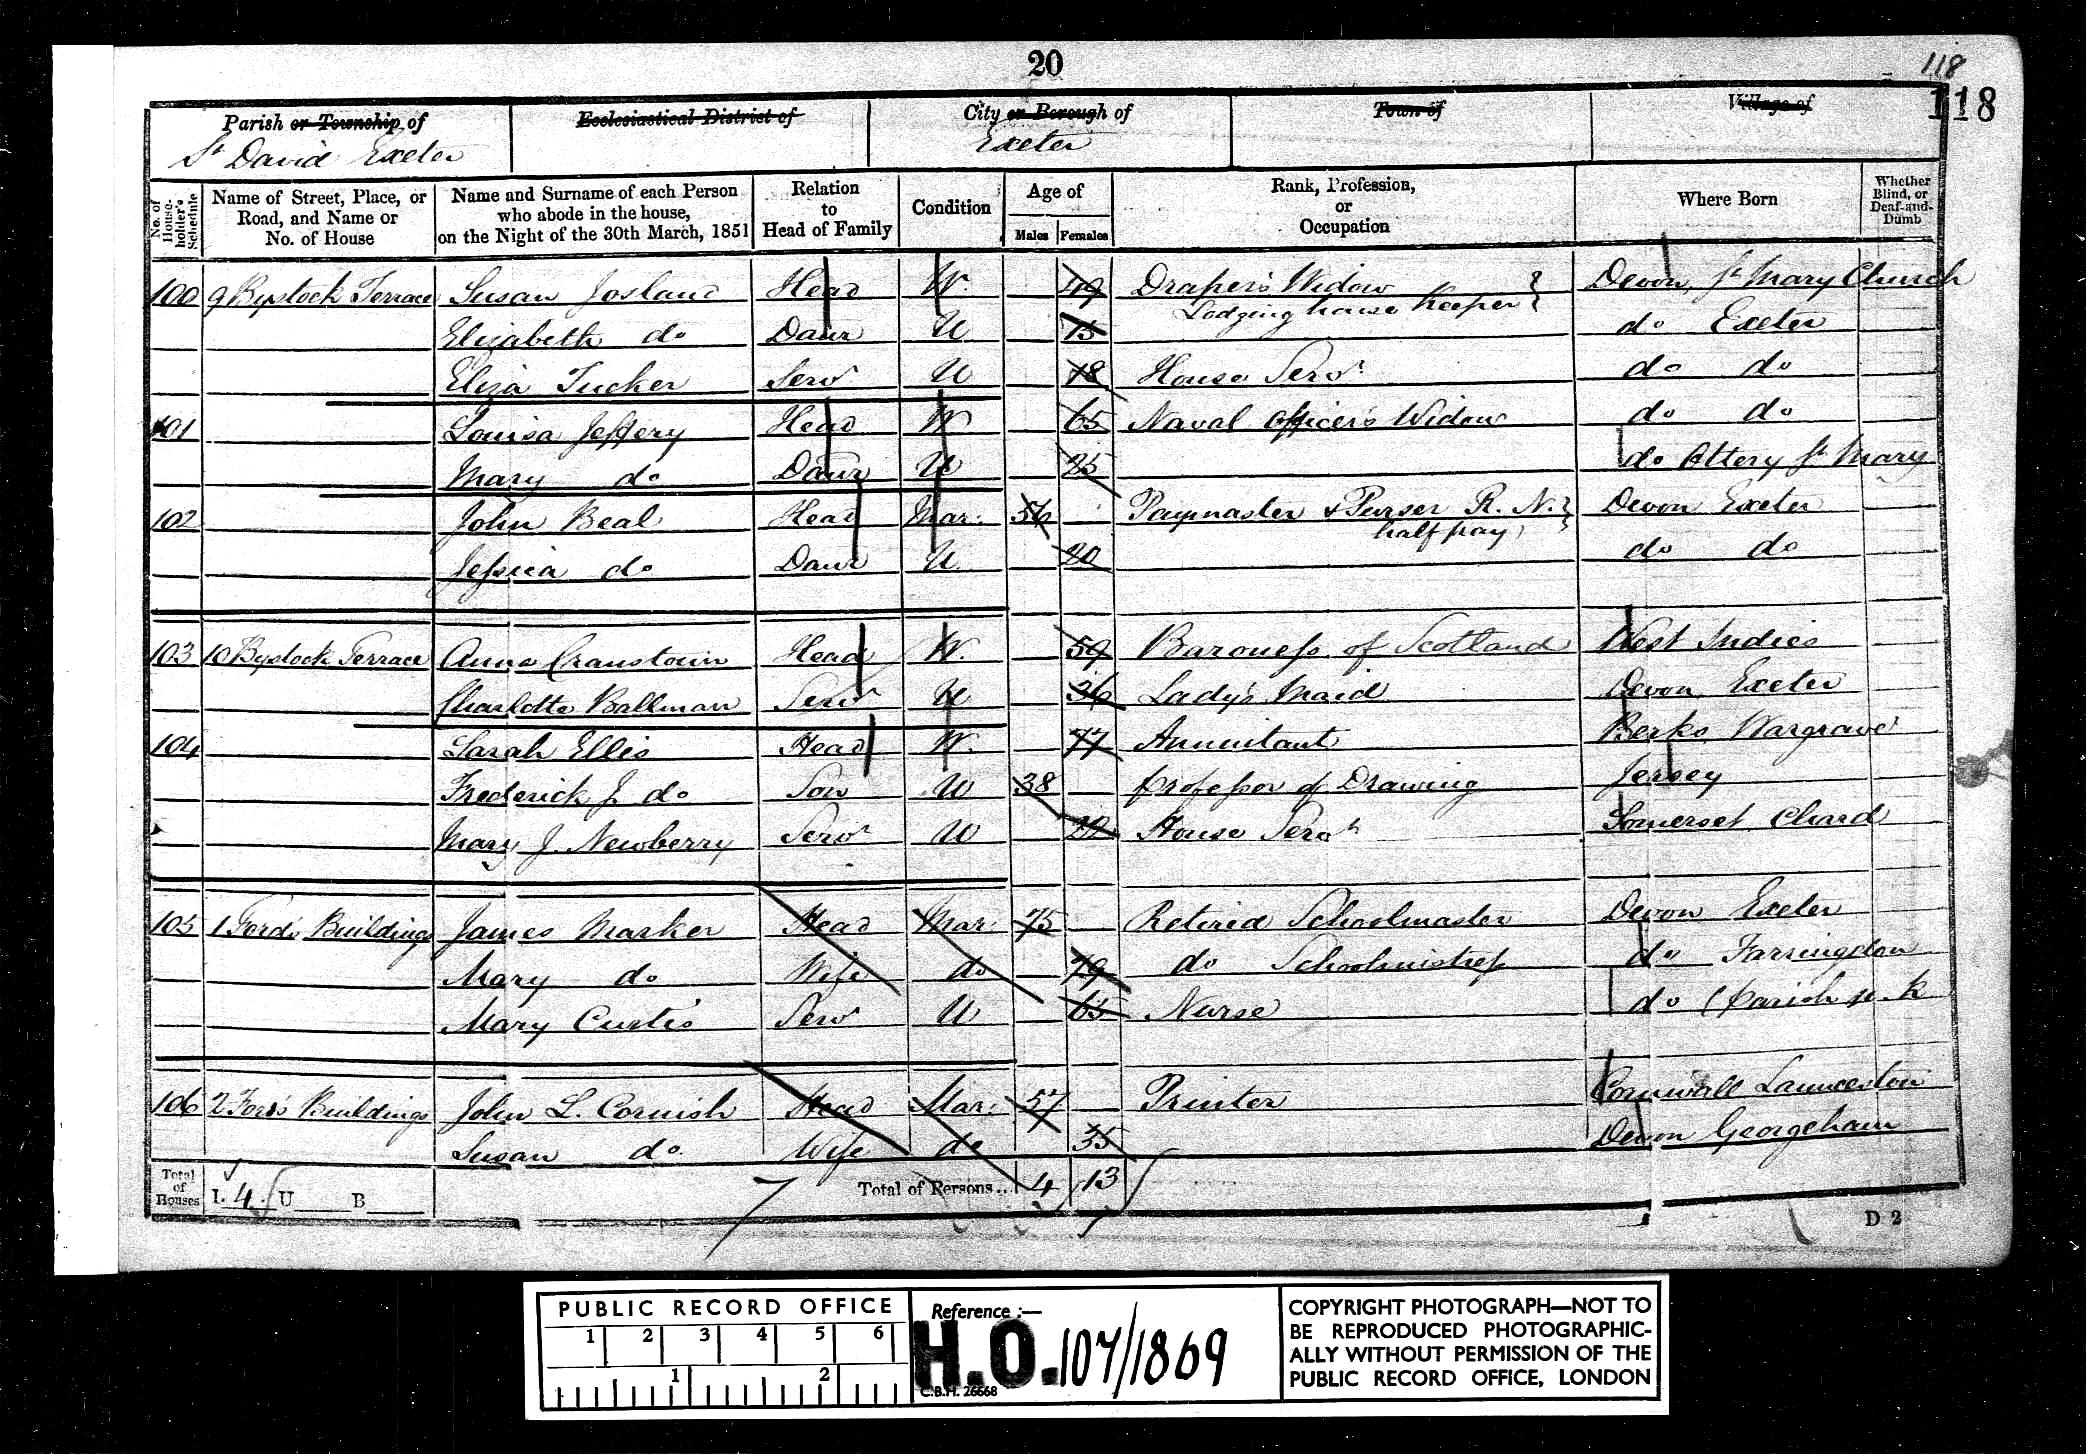 20
118
118
Parish or Township of
Ecclesiastical District of
City or Borough of
Town of
Village of
St David Exeter
Exeter
No. of House-holder's Schedule
Name of Street, Place, or Road, and Name or No. of House
Name and Surname of each Person who abode in the house, on the Night of the 30th March, 1851
Relation to Head of Family
Condition
Age of
Males
Females
Rank, Profession, or Occupation
Where Born
Whether Blind, or Deaf-and-Dumb
100 9 Bystock Terrace Susan Josland Head W. 49 Draper's Widow Devon, St Mary Church
Lodging house Keeper
Elizabeth do Daur U 15 do Exeter
Eliza Tucker Servt U 18 House Servt do do
101 Louisa Jeffery Head W 65 Naval Officer's Widow do do
Mary do Daur U 25 do Ottery St Mary
102 John Beal Head Mar. Paymaster & Purser R. N. Devon Exeter
half pay
Jessica do Daur U 20 do do
103 10 Bystock Terrace Anna Cranstown Head W. 59 Baroness of Scotland West Indies
Charlotte Ballman Servt U 36 Lady's Maid Devon Exeter
104 Sarah Ellis Head W. 77 Annuitant Berks Wargrave
Frederick J. do Son U 38 professor of Drawing Jersey
Mary J. Newberry Servt U 22 House Servt Somerset Chard
105 1 Ford's Buildings James Marker Head Mar. 75 Retired Schoolmaster Devon Exeter
Mary do Wife do 79 do Schoolmistress do Farringdon
Mary Curtis Servt U 65 Nurse do (Parish n. k
106 2 Ford's Buildings John L. Cornish Head Mar. 57 Printer Cornwall Launceston
Susan do Wife do 35 Devon Georgeham
Total of Houses I. 4. U B
Total of Persons... 4 13
D 2
PUBLIC RECORD OFFICE
1 2 3 4 5 6
1 2
Reference :-
H.O. 107/1869
C.B.H. 26668
COPYRIGHT PHOTOGRAPH—NOT TO
BE REPRODUCED PHOTOGRAPHIC-
ALLY WITHOUT PERMISSION OF THE
PUBLIC RECORD OFFICE, LONDON